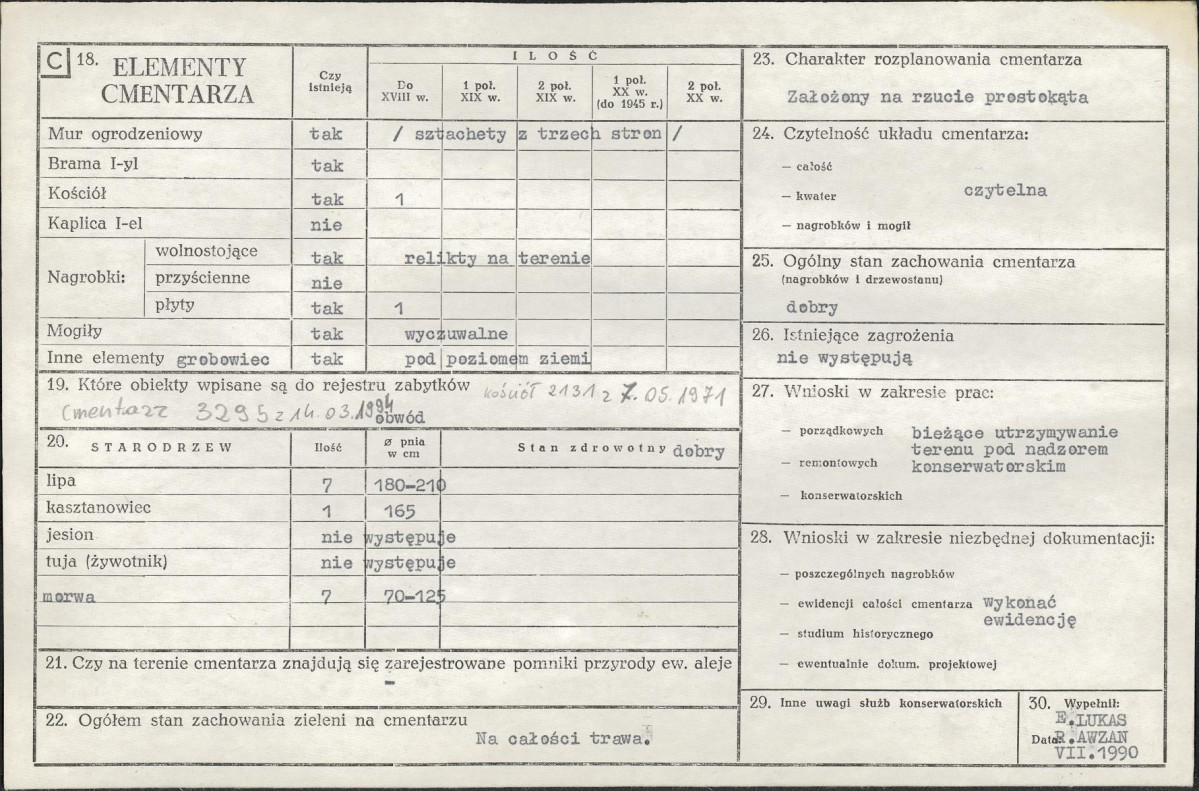 C 18. ELEMENTY CMENTARZA
Czy istnieją
ILOŚĆ
Do XVIII w.
1 poł. XIX w.
2 poł. XIX w.
1 poł. XX w. (do 1945 r.)
2 poł. XX w.
Mur ogrodzeniowy tak / sztachety z trzech stron /
Brama I-yl tak
Kościół tak 1
Kaplica I-el nie
Nagrobki:
wolnostojące tak relikty na terenie
przyścienne nie
płyty tak 1
Mogiły tak wyczuwalne
Inne elementy grobowiec tak pod poziomem ziemi
19. Które obiekty wpisane są do rejestru zabytków kościół 2131 z 7.05.1971
Cmentarz 3295 z 14.03.1994
obwód
20. STARODRZEW
Ilość
ø pnia w cm
Stan zdrowotny dobry
lipa 7 180-210
kasztanowiec 1 165
jesion nie występuje
tuja (żywotnik) nie występuje
morwa 7 70-125
21. Czy na terenie cmentarza znajdują się zarejestrowane pomniki przyrody ew. aleje
-
22. Ogółem stan zachowania zieleni na cmentarzu
Na całości trawa.
23. Charakter rozplanowania cmentarza
Założony na rzucie prostokąta
24. Czytelność układu cmentarza:
— całość
— kwater czytelna
— nagrobków i mogił
25. Ogólny stan zachowania cmentarza
(nagrobków i drzewostanu)
dobry
26. Istniejące zagrożenia
nie występują
27. Wnioski w zakresie prac:
— porządkowych bieżące utrzymywanie
terenu pod nadzorem
— remontowych konserwatorskim
— konserwatorskich
28. Wnioski w zakresie niezbędnej dokumentacji:
— poszczególnych nagrobków
— ewidencji całości cmentarza wykonać
ewidencję
— studium historycznego
— ewentualnie dokum. projektowej
29. Inne uwagi służb konserwatorskich
30. Wypełnił:
E.LUKAS
Data: R.AWZAN
VII.1990